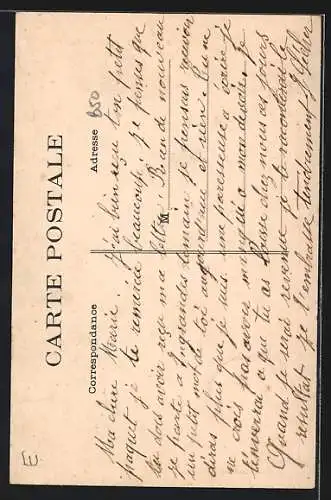 CARTE POSTALE
Correspondance
Adresse
B50
Ma chère Marie. J'ai bien reçu ton petit
paquet je te remercie beaucoup; je pensais que
tu dois avoir reçu ma lettre. Rien de nouveau
je parte à Ingrandes demain je pensais avoir
un petit mot de toi aujourd'hui et rien. Tu me
diras plus que je suis une paresseuse à écrire je
ne crois pas avoir manqué à mon devoir. Je
t'enverrai ce que tu as laissé chez nous ces jours
Quand je serai revenue je te raconterai le
résultat je t'embrasse tendrement
E